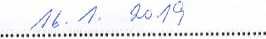 16. 1. 2019